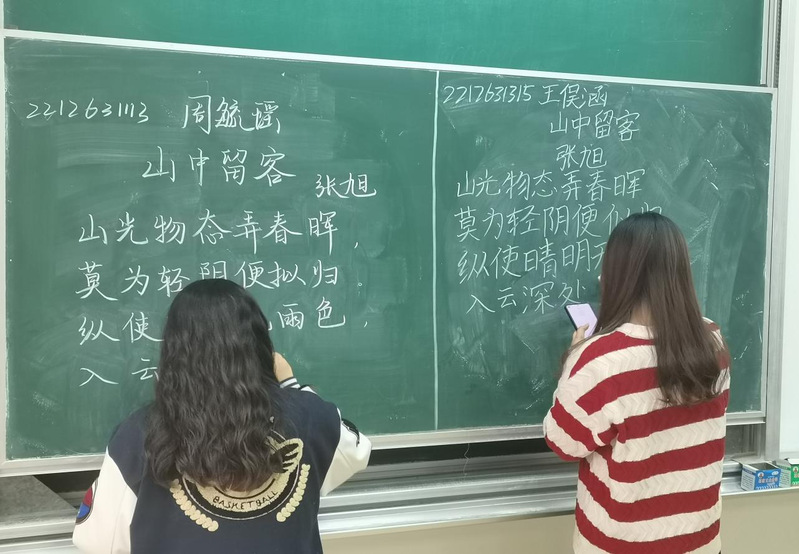 2212631113 周毓瑶
山中留客
张旭
山光物态弄春晖,
莫为轻阴便拟归
纵使 雨色,
入云
2212631315 王俣涵
山中留客
张旭
山光物态弄春晖
莫为轻阴便似归
纵使晴明无
入云深处
BASKETBALL